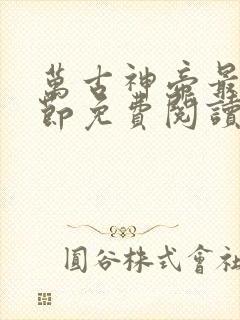 萬古神帝最
節免費閱讀
圓谷株式會社